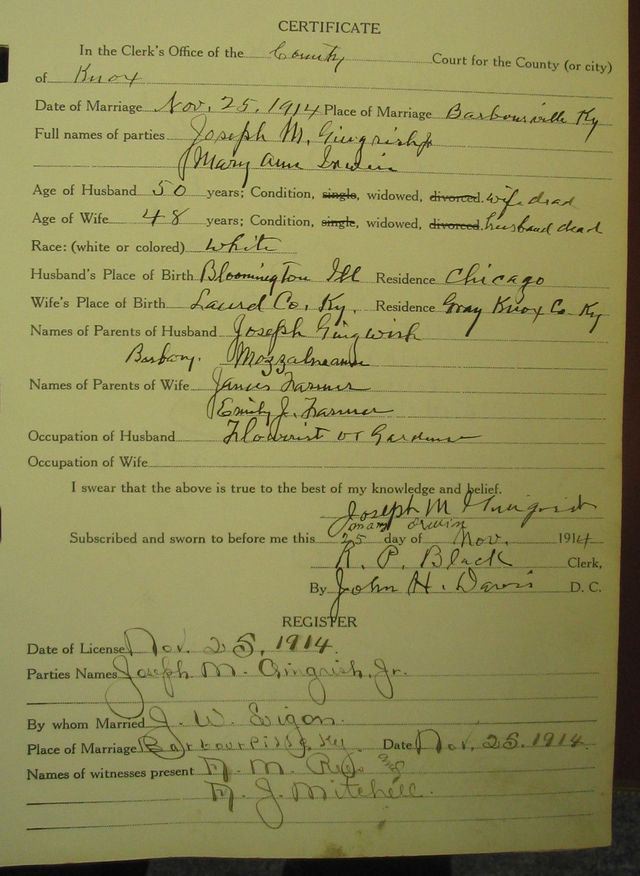 CERTIFICATE
In the Clerk's Office of the County Court for the County (or city)
of Knox
Date of Marriage Nov. 25, 1914 Place of Marriage Barboursville Ky
Full names of parties Joseph M. Gingrish Jr
Mary Ann Irwin
Age of Husband 50 years; Condition, single, widowed, divorced. wife dead
Age of Wife 48 years; Condition, single, widowed, divorced. husband dead
Race: (white or colored) white
Husband's Place of Birth Bloomington Ill Residence Chicago
Wife's Place of Birth Laurel Co. Ky. Residence Gray Knox Co Ky
Names of Parents of Husband Joseph Gingwish
Barbary.
Names of Parents of Wife James Farmer
Emily J. Farmer
Occupation of Husband Flowrist or Gardner
Occupation of Wife
I swear that the above is true to the best of my knowledge and belief.
Joseph M Gingrish
mary Irwin
Subscribed and sworn to before me this 25 day of Nov. 1914
R. P. Black Clerk,
By John H. Davis D. C.
REGISTER
Date of License Nov. 25, 1914.
Parties Names Joseph M. Gingrish, Jr.
By whom Married J. W. Ligon.
Place of Marriage Ky. Date Nov. 25. 1914.
Names of witnesses present M. and
M. J. Mitchell.